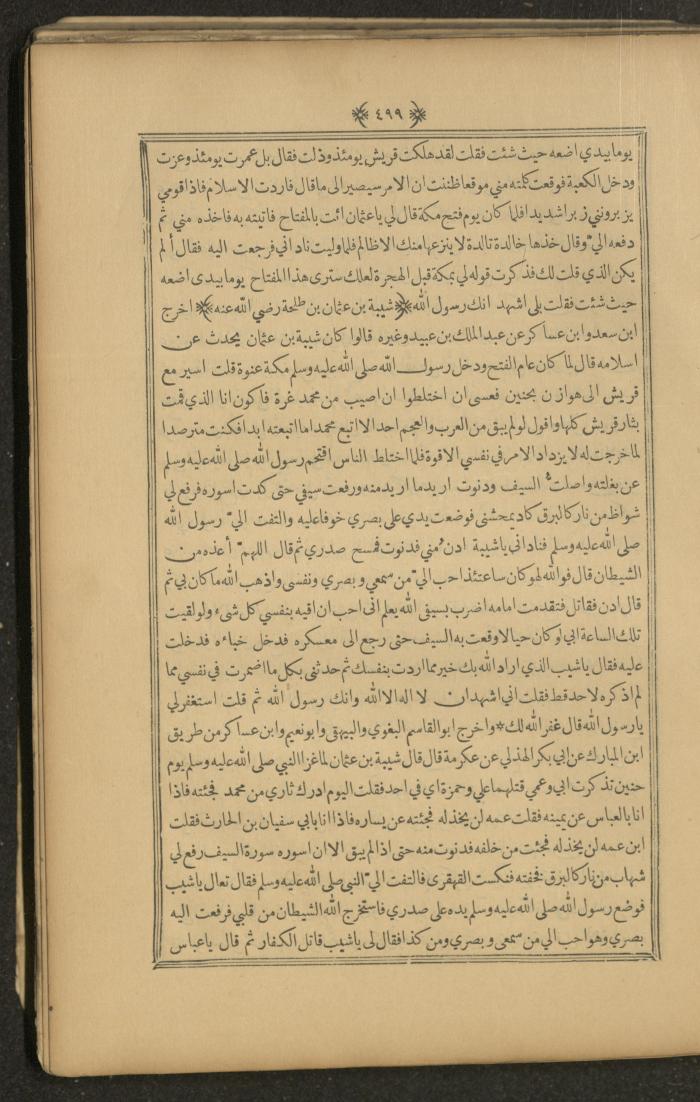 ﴿ ٤٩٩ ﴾
يوما بيدي اضعه حيث شئت فقلت لقد هلكت قريش يومئذ وذلت فقال بل عمرت يومئذ وعزت
ودخل الكعبة فوقعت كلمته مني موقعا ظننت ان الامر سيصير الى ما قال فاردت الاسلام فاذا قومي
يزبرونني زبرا شديدا فلما كان يوم فتح مكة قال لي ياعثمان ائت بالمفتاح فاتيته به فاخذه مني ثم
دفعه اليّ وقال خذها خالدة تالدة لا ينزعها منك الا ظالم فلما وليت ناداني فرجعت اليه فقال ألم
يكن الذي قلت لك فذكرت قوله لي بمكة قبل الهجرة لعلك سترى هذا المفتاح يوما بيدي اضعه
حيث شئت فقلت بلى اشهد انك رسول الله ﴿شيبة بن عثمان بن طلحة رضي الله عنه﴾ اخرج
ابن سعد وابن عساكر عن عبد الملك بن عبيد وغيره قالوا كان شيبة بن عثمان يحدث عن
اسلامه قال لما كان عام الفتح ودخل رسول الله صلى الله عليه وسلم مكة عنوة قلت اسير مع
قريش الى هوازن بحنين فعسى ان اختلطوا ان اصيب من محمد غرة فاكون انا الذي قمت
بثار قريش كلها واقول لو لم يبق من العرب والعجم احد الا اتبع محمدا ما اتبعته ابدا فكنت مترصدا
لما خرجت له لا يزداد الامر في نفسي الا قوة فلما اختلط الناس اقتحم رسول الله صلى الله عليه وسلم
عن بغلته واصلت السيف ودنوت اريد ما اريد منه ورفعت سيفي حتى كدت اسوره فرفع لي
شواظ من نار كالبرق كاد يمحشني فوضعت يدي على بصري خوفا عليه والتفت اليّ رسول الله
صلى الله عليه وسلم فناداني ياشيبة ادن مني فدنوت فمسح صدري ثم قال اللهم أعذه من
الشيطان قال فوالله لهو كان ساعتئذ احب اليّ من سمعي وبصري ونفسي واذهب الله ما كان بي ثم
قال ادن فقاتل فتقدمت امامه اضرب بسيفي الله يعلم انى احب ان اقيه بنفسي كل شيء ولو لقيت
تلك الساعة ابي لو كان حيا لاوقعت به السيف حتى رجع الى معسكره فدخل خباءه فدخلت
عليه فقال ياشيب الذي اراد الله بك خير مما اردت بنفسك ثم حدثنى بكل ما اضمرت في نفسي مما
لم اذكره لاحد قط فقلت اني اشهد ان لا اله الا الله وانك رسول الله ثم قلت استغفر لي
يا رسول الله قال غفر الله لك * واخرج ابو القاسم البغوي والبيهقي وابو نعيم وابن عساكر من طريق
ابن المبارك عن ابي بكر الهذلي عن عكرمة قال قال شيبة بن عثمان لما غزا النبي صلى الله عليه وسلم يوم
حنين تذكرت ابي وعمي قتلهما علي وحمزة اي في احد فقلت اليوم ادرك ثاري من محمد فجئته فاذا
انا بالعباس عن يمينه فقلت عمه لن يخذله فجئته عن يساره فاذا انا بابي سفيان بن الحارث فقلت
ابن عمه لن يخذله فجئت من خلفه فدنوت منه حتى اذا لم يبق الا ان اسوره سورة السيف رفع لي
شهاب من نار كالبرق فخفته فنكست القهقرى فالتفت اليّ النبي صلى الله عليه وسلم فقال تعال ياشيب
فوضع رسول الله صلى الله عليه وسلم يده على صدري فاستخرج الله الشيطان من قلبي فرفعت اليه
بصري وهو احب الي من سمعي وبصري ومن كذا فقال لى ياشيب قاتل الكفار ثم قال ياعباس